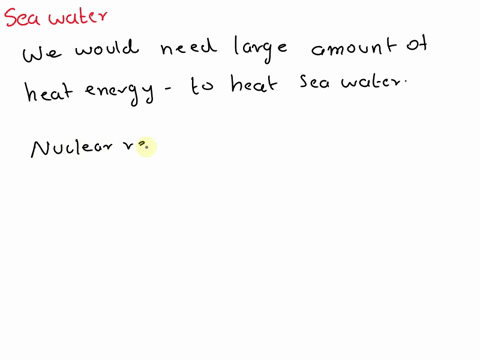 Sea water
We would need large amount of
heat energy - to heat sea water.
Nuclear